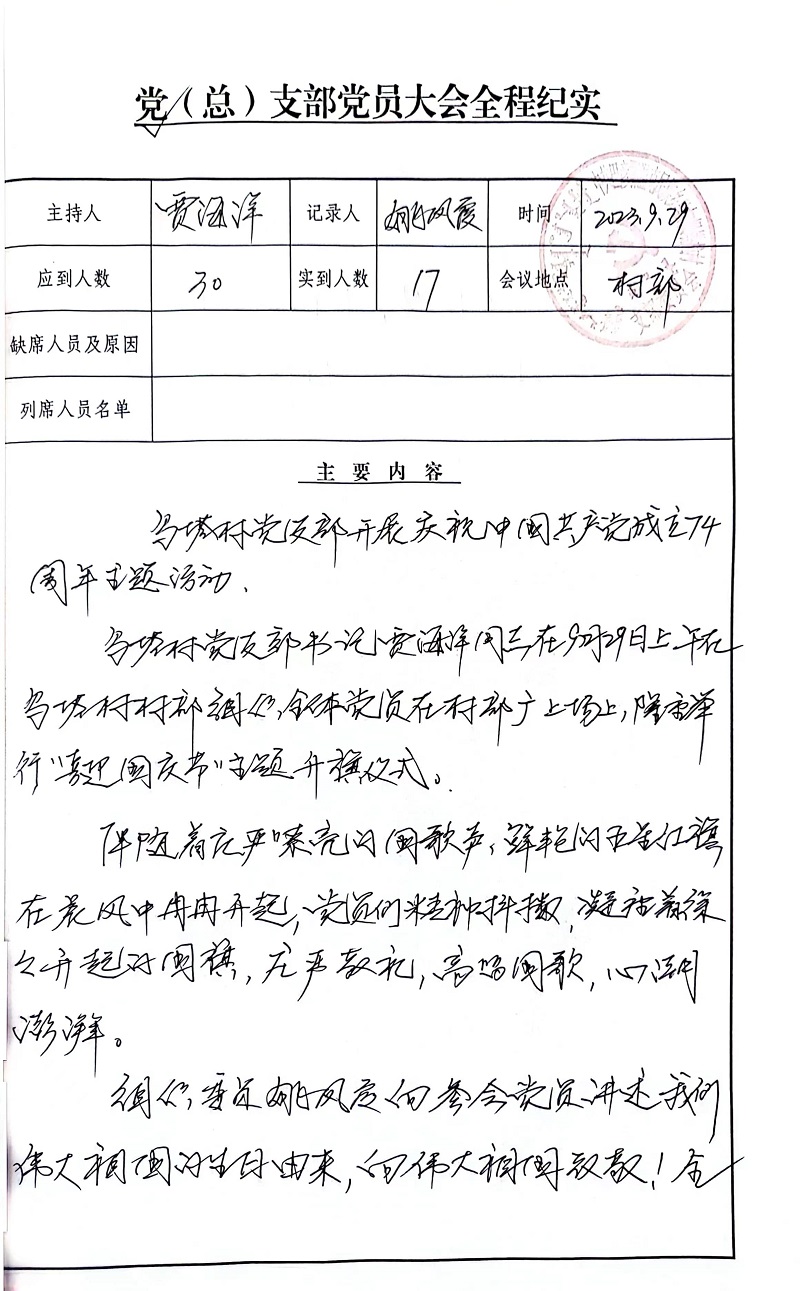 党（总）支部党员大会全程纪实
主持人 贾海洋 记录人 风霞 时间 2023.9.29
应到人数 30 实到人数 17 会议地点 村部
缺席人员及原因
列席人员名单
主要内容
乌塔村党支部开展庆祝中国共产党成立74
周年主题活动.
乌塔村党支部书记贾海洋同志在9月29日上午在
乌塔村村部组织全体党员在村部广上场上,隆重举
行“喜迎国庆节”主题升旗仪式。
伴随着庄严嘹亮的国歌声,鲜艳的五星红旗
在晨风中冉冉升起,党员们精神抖擞,凝视着徐
々升起的国旗,庄严敬礼,高唱国歌,心潮
澎湃。
组织委员 风霞向参会党员讲述我们
伟大祖国的生日由来,向伟大祖国致敬!全